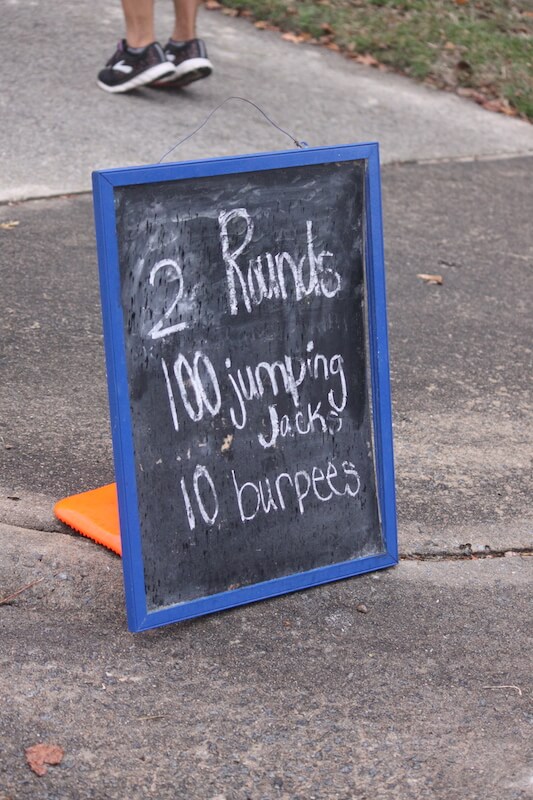 2 Rounds
100 jumping
Jacks
10 burpees